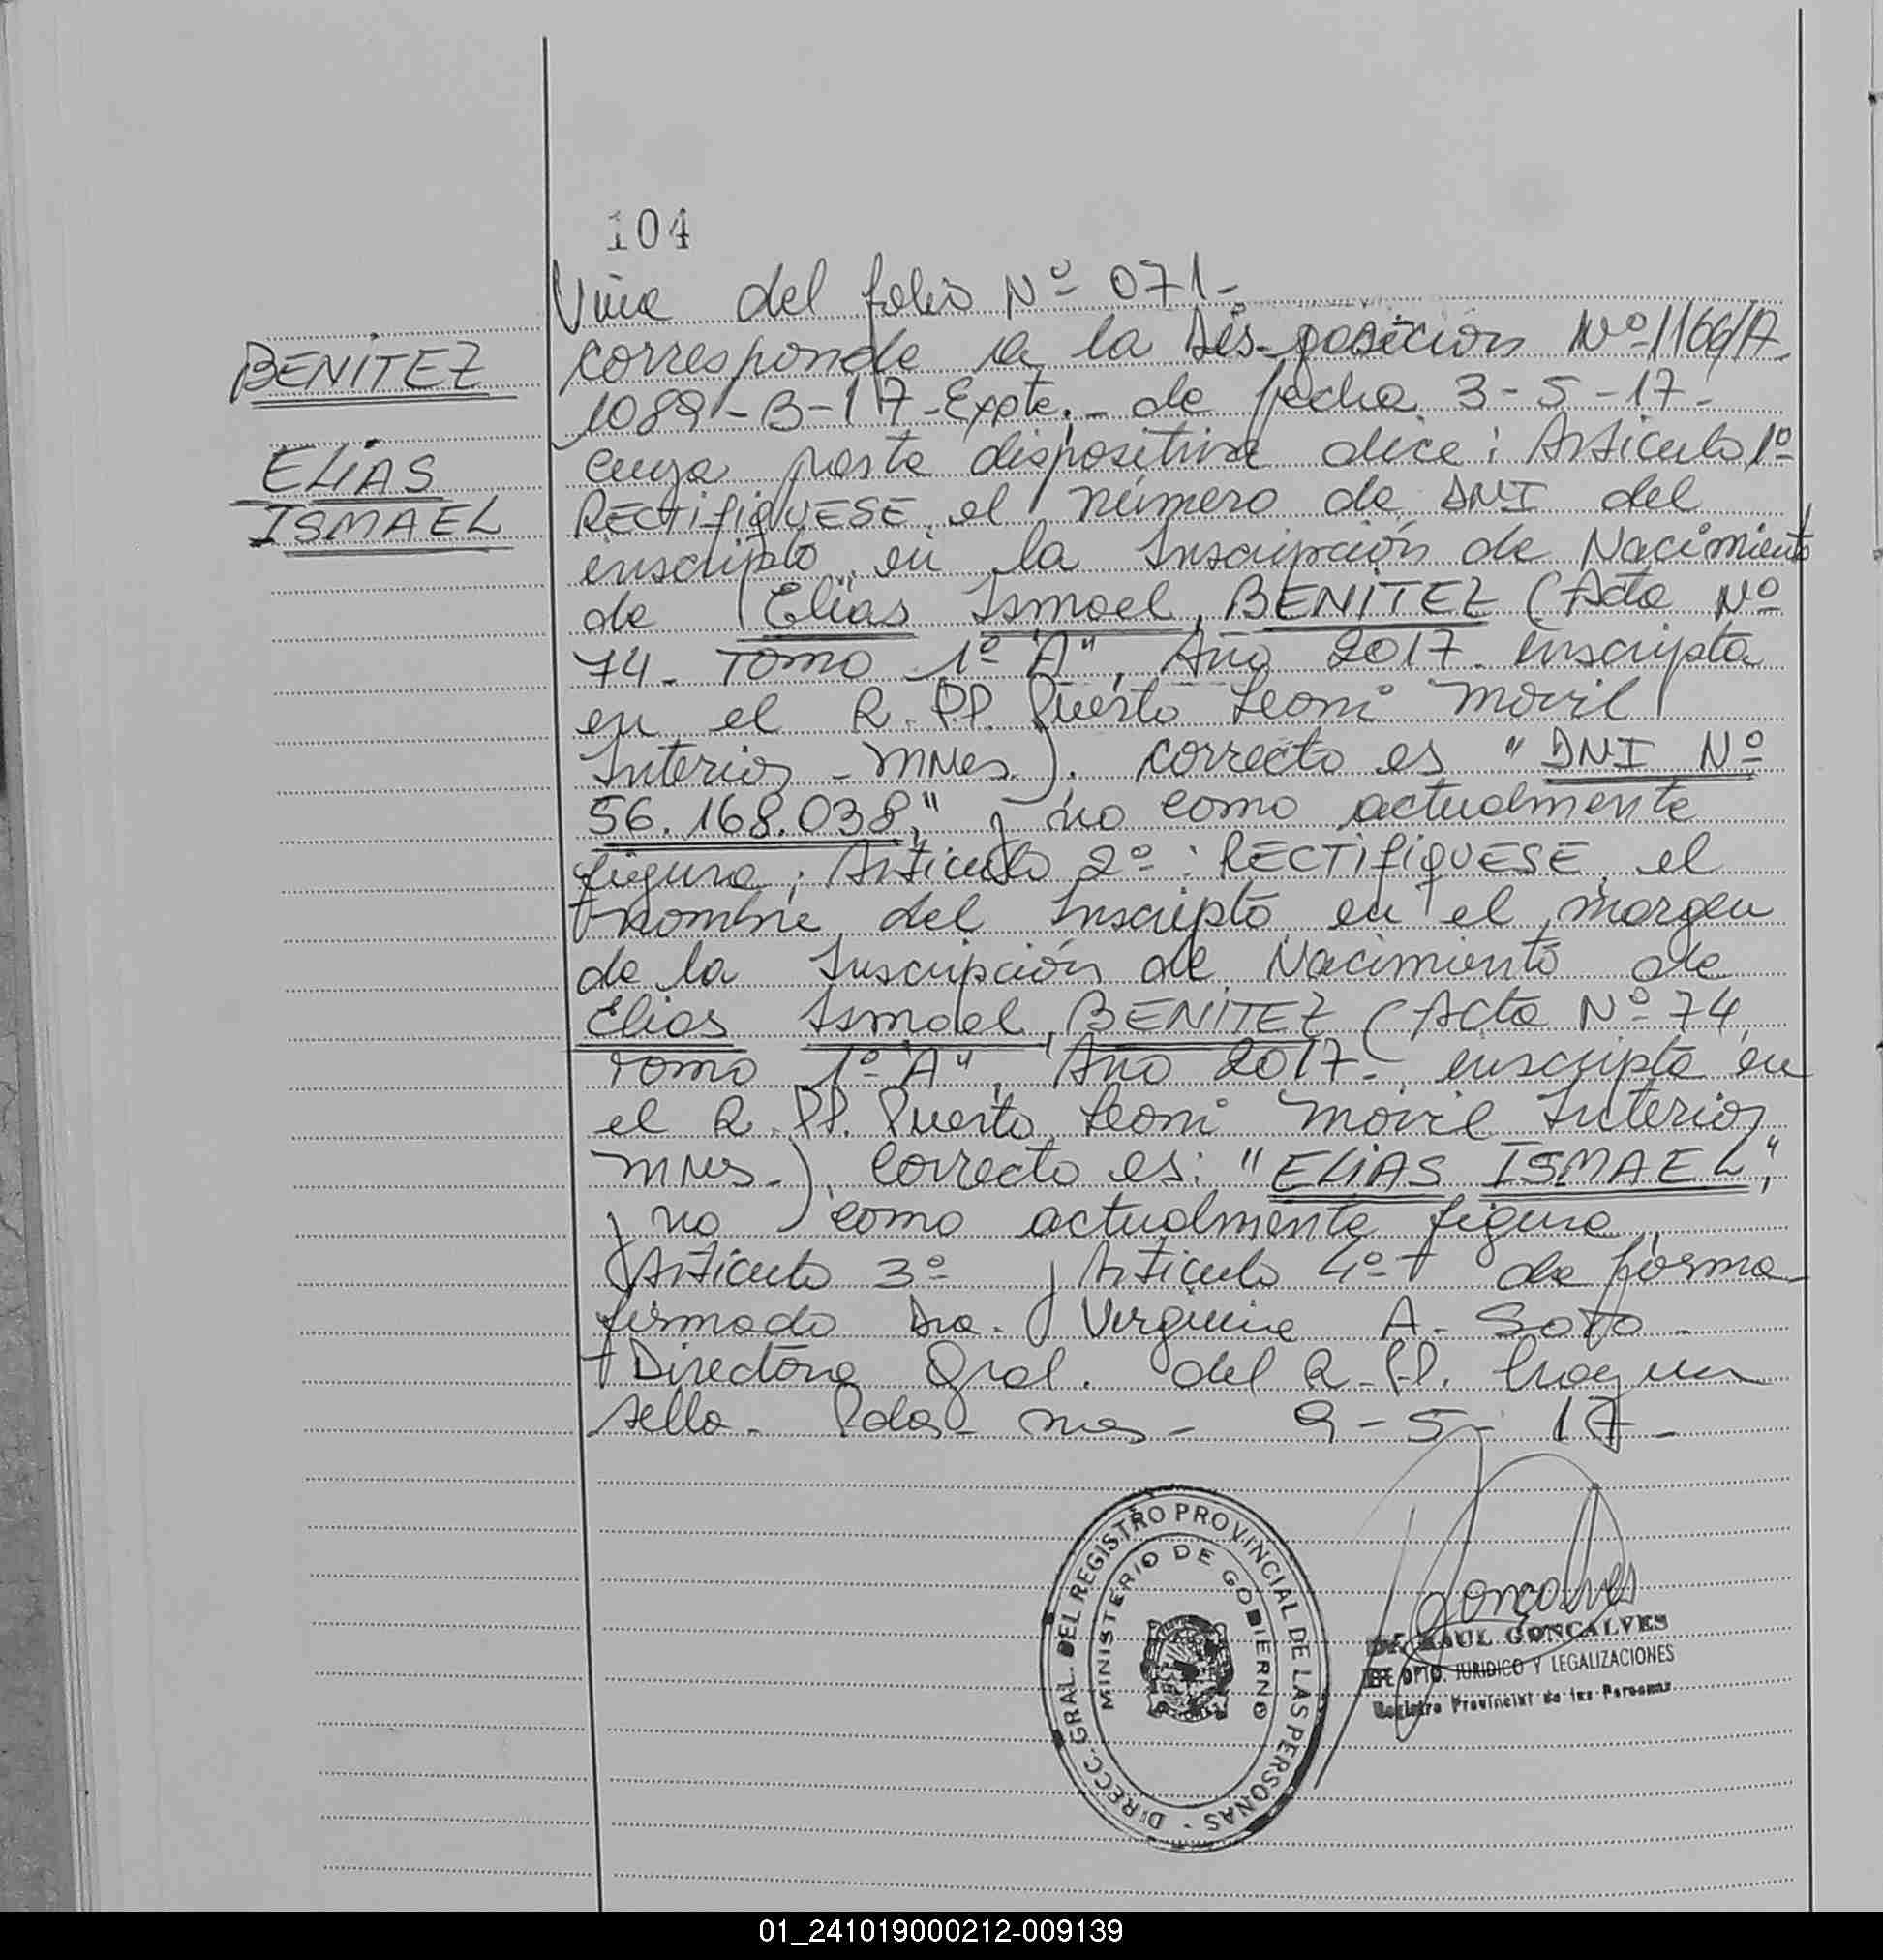 104
Viene del folio Nº 071-
BENITEZ
ELIAS
ISMAEL
corresponde a la Disposición Nº 1166/A
1089-B-17-Expte.- de fecha 3-5-17-
cuya parte dispositiva dice: Artículo 1º
RECTIFIQUESE, el número de DNI del
inscripto en la Inscripción de Nacimiento
de Elías Ismael, BENITEZ (Acta Nº
74- Tomo 1º "A", Año 2017- inscripta
en el R.PP. Puerto Leoni Móvil
Interior - Mnes.). correcto es "DNI Nº
56.168.038", y no como actualmente
figura; Artículo 2º: RECTIFIQUESE, el
nombre del Inscripto en el margen
de la Inscripción de Nacimiento de
Elias Ismael, BENITEZ (Acta Nº 74,
Tomo 1º "A", Año 2017- inscripta en
el R.PP. Puerto Leoni Móvil Interior
Mnes-). Correcto es: "ELIAS ISMAEL",
y no como actualmente figura,
Artículo 3º y Artículo 4º de forma-
firmado Dra. Virginia A. Soto-
Directora Gral. del R.PP. Hay un
sello- Pdas- Mnes- 9-5-17-
DIRECC. GRAL. DEL REGISTRO PROVINCIAL DE LAS PERSONAS -
MINISTERIO DE GOBIERNO
Gonçalves
DR. RAUL GONCALVES
JEFE DPTO. JURIDICO Y LEGALIZACIONES
Registro Provincial de las Personas
01_241019000212-009139